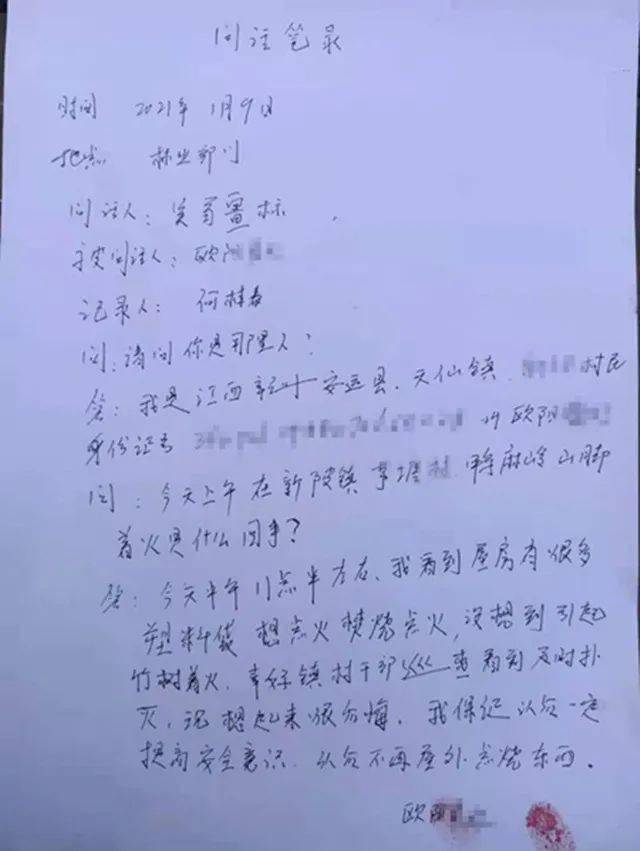 问话笔录
时间 2021年1月9日
地点 林业部门
问话人:
被问话人:欧阳
记录人:何桂春
问:请问你是那里人?
答:我是江西 安远县.天 镇 村民
身份证号 叫欧阳
问:今天上午在新陂镇 村 麻岭山脚
着火是什么回事?
答:今天中午11点半左右、我看到屋房有很多
塑料袋 想点火焚烧点火,没想到引起
竹树着火.幸好镇村干部巡查看到及时扑
灭,现想起来很后悔.我保证以后一定
提高安全意识.以后不再屋外点烧东西.
欧阳